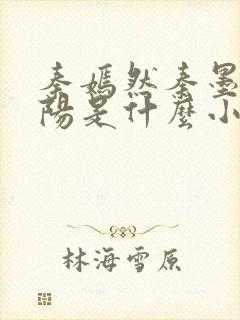 秦嫣然秦墨
陽是什麼小
林海雪原